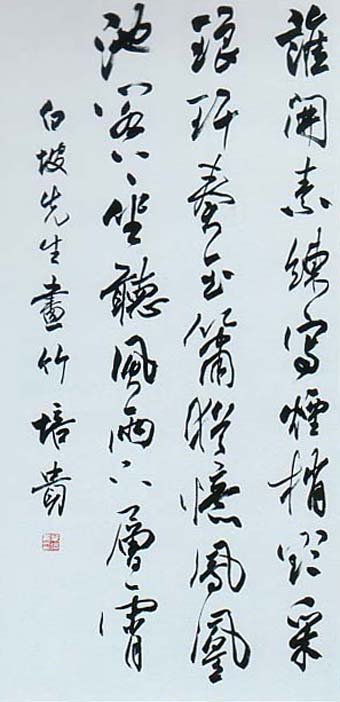 誰開素練寫煙梢采
琅玕奏玉簫猶憶鳳凰
池閣上坐聽風雨下層霄
白坡先生畫竹培貴